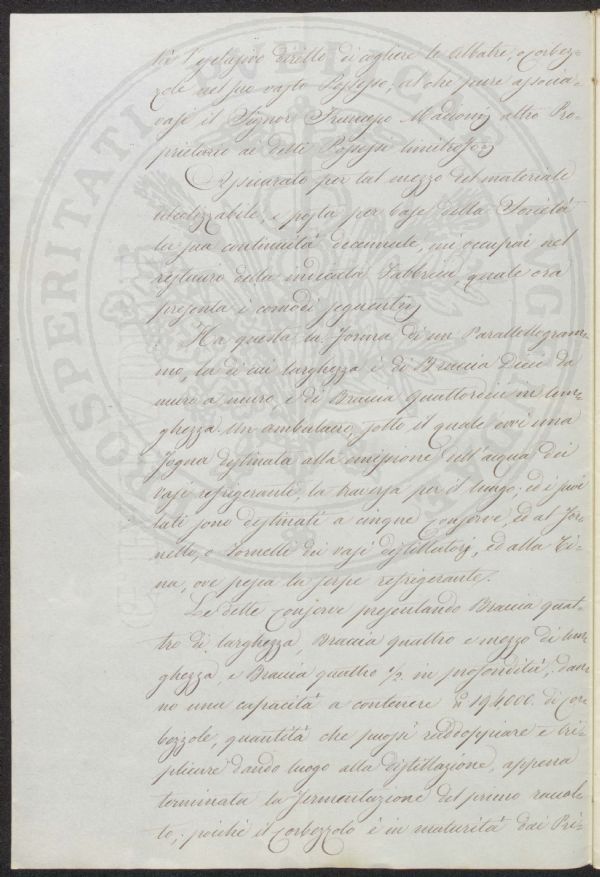 vi l'esclusivo diritto di cogliere le Albatre, o Corbez-
zole nel suo vasto Possesso, al che pure associa-
vasi il Signor Francesco Madoni altro Pro-
prietario di detti Possessi limitrofi
Assicurato per tal mezzo del materiale
utilizzabile, e posta per base della Società
la sua continuità decennale, mi occupai nel
restauro della indicata Fabbrica, quale ora
presenta i comodi seguenti
Ha questa la forma di un Parallellogram-
mo, la di cui larghezza è di Braccia Dieci da
muro a muro, e di Braccia quattordici in lun-
ghezza. Un ambulacro, sotto il quale evvi una
fogna destinata alla emissione dell'acqua dei
vasi refrigerante, la traversa per il lungo; ed i suoi
lati sono destinati a cinque Conserve, ed al For-
nello, o Fornelli dei vasi distillatori, ed alla Ti-
na, ove pesca la serpe refrigerante.
Le dette Conserve presentando Braccia quat-
tro di larghezza, Braccia quattro e mezzo di lun-
ghezza, e Braccia quattro 1/2 in profondità, dan-
no una capacità a contenere 194000. di Cor-
bezzole, quantità che puossi raddoppiare e tri-
plicare dando luogo alla distillazione, appena
terminata la fermentazione del primo raccol-
to; poichè il Corbezzolo è in maturità dai Pri-
PROSPERITATI PUBLICAE AUGENDAE